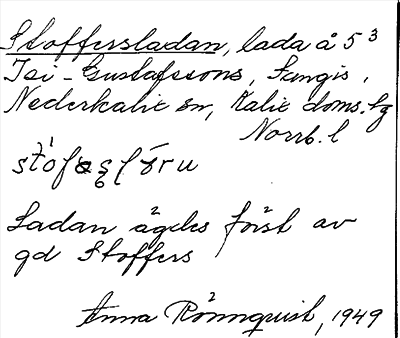 Stoffersladan, lada å 5³
Isi-Gustafssons, Sangis,
Nederkalix sn, Kalix doms. hg
Norrb. l
Ladan ägdes först av
gd Stoffers
Anna Rönnquist, 1949